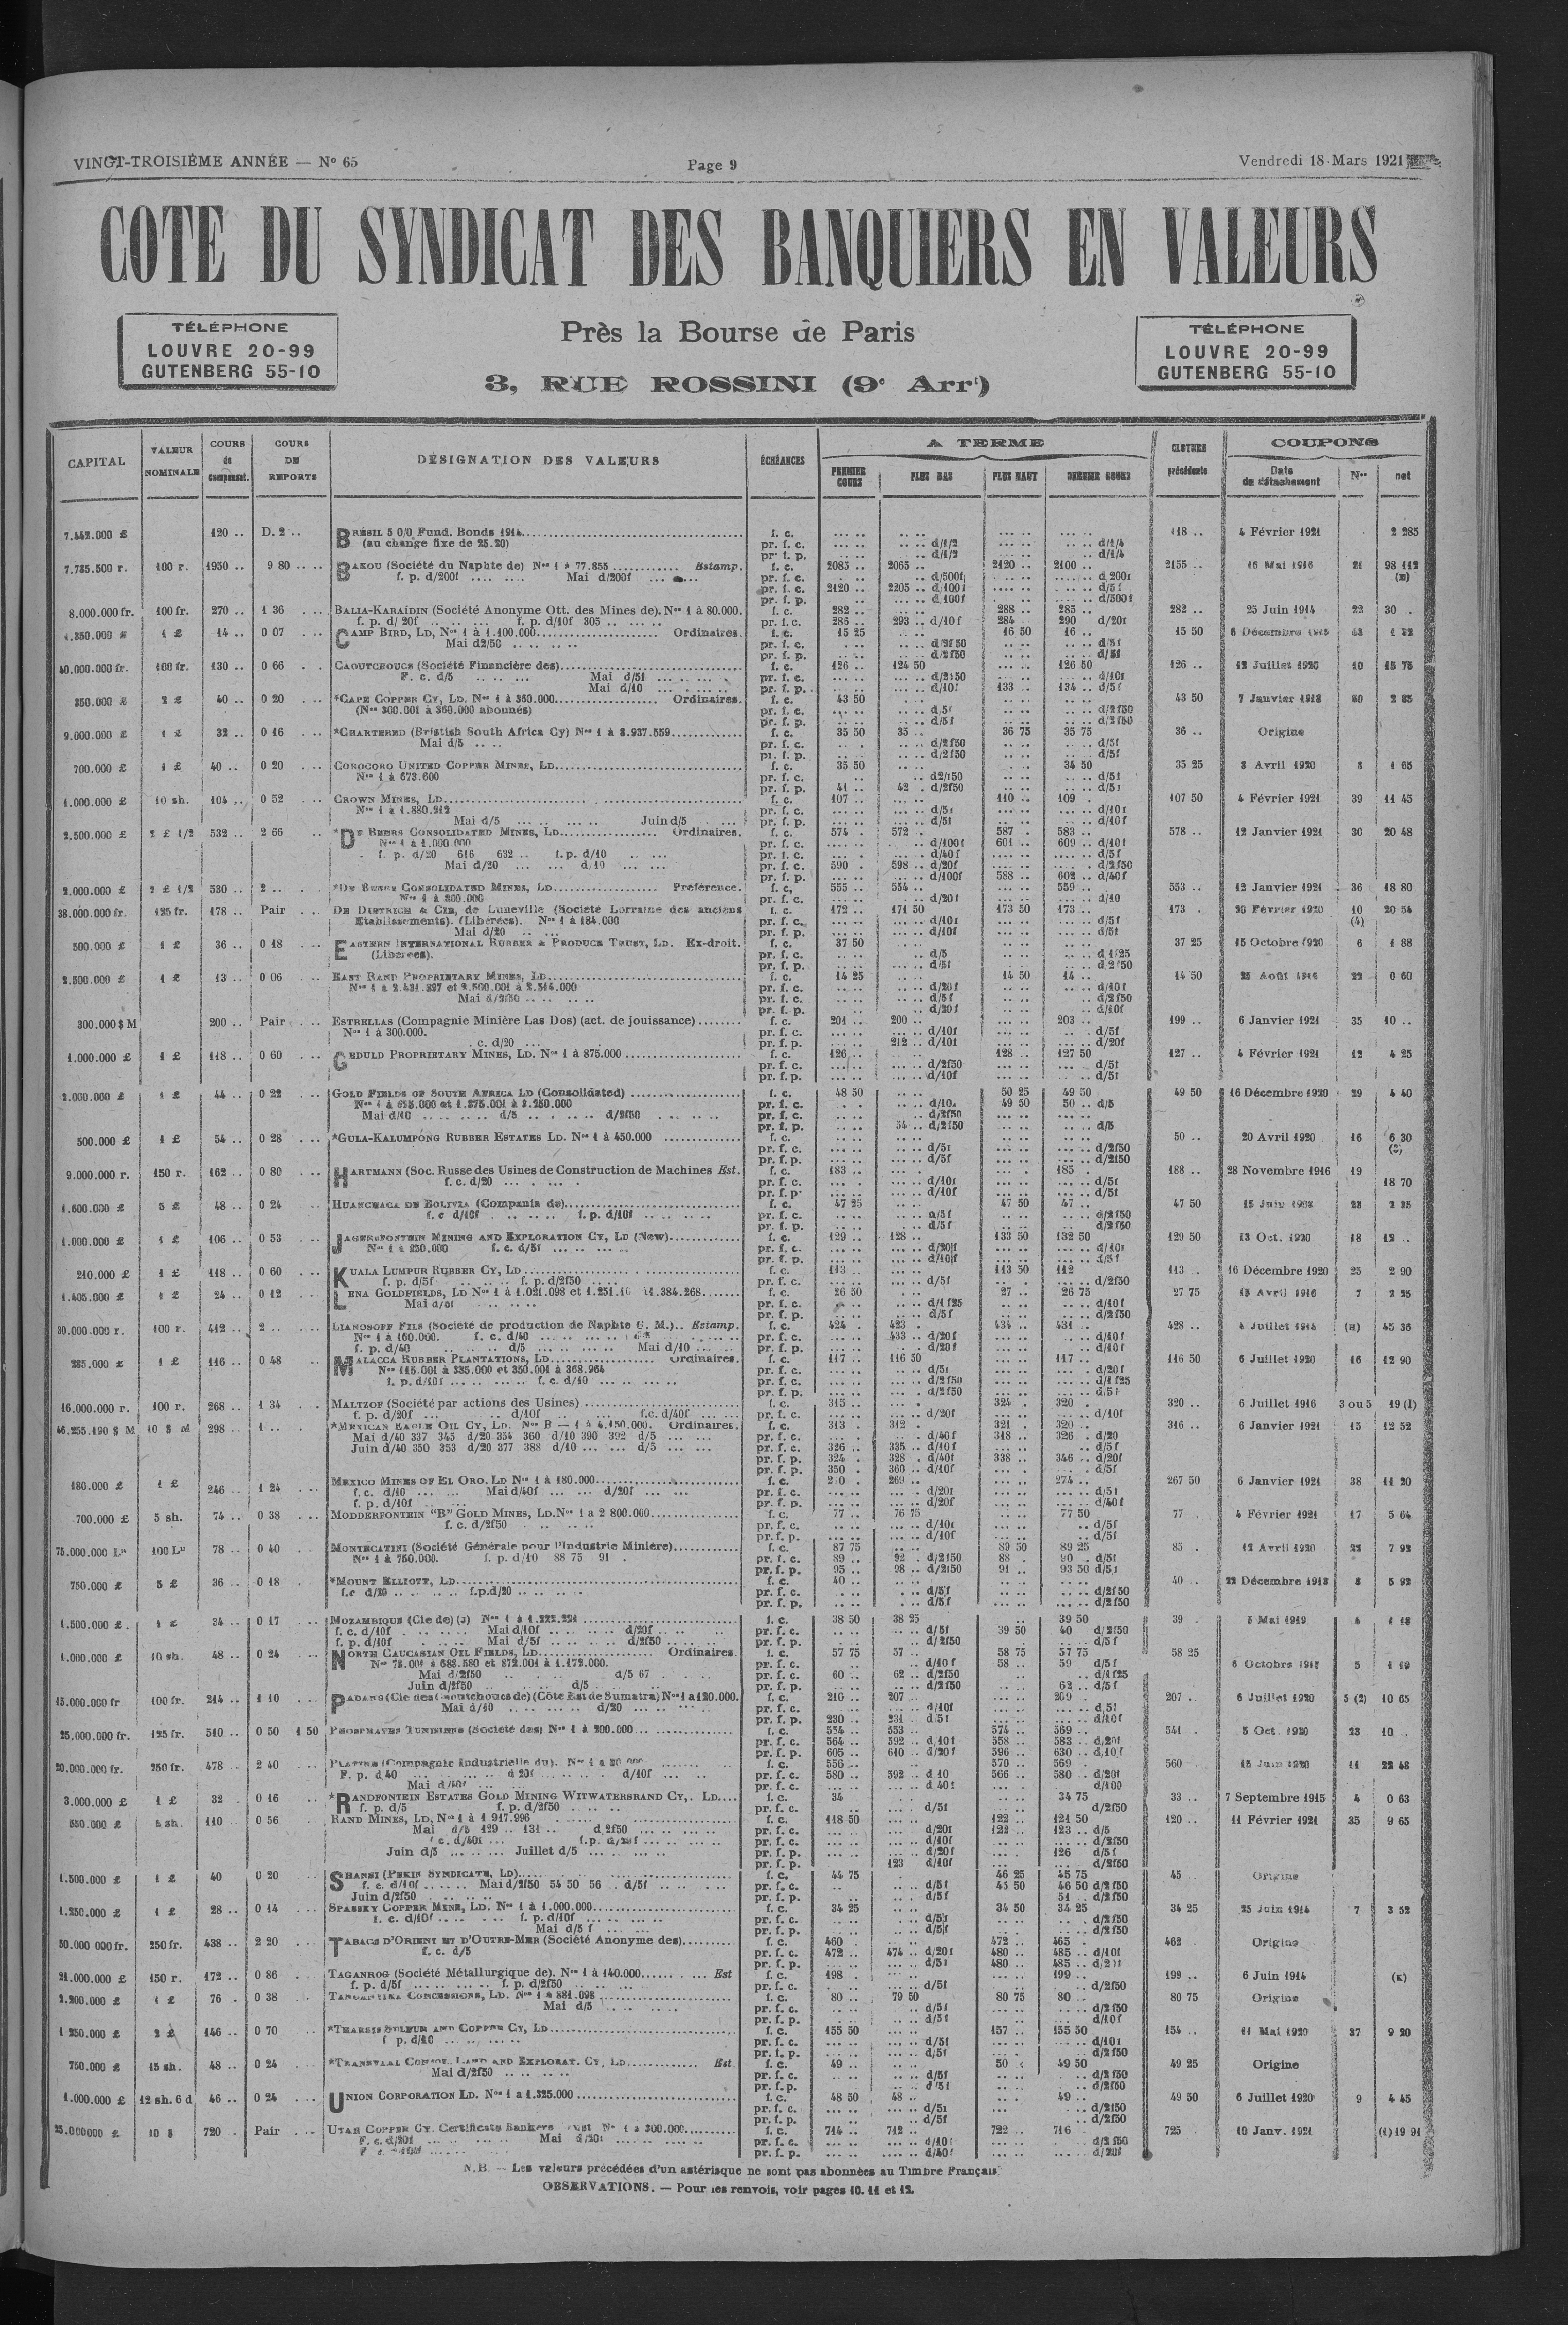 VINGT-TROISIÈME ANNÉE — N° 65
Page 9
Vendredi 18 Mars 1921
COTE DU SYNDICAT DES BANQUIERS EN VALEURS
TÉLÉPHONE
LOUVRE 20-99
GUTENBERG 55-10
Près la Bourse de Paris
3, RUE ROSSINI (9e Arrt)
TÉLÉPHONE
LOUVRE 20-99
GUTENBERG 55-10
CAPITAL VALEUR NOMINALE COURS de compensat. COURS DE REPORTS DÉSIGNATION DES VALEURS ÉCHÉANCES A TERME PREMIER COURS PLUS BAS PLUS HAUT DERNIER COURS CLOTURE précédente COUPONS Date de détachement Nos net
7.442.000 £ 120 .. D. 2 .. BRÉSIL 5 0/0 Fund. Bonds 1914 f. c. 118 .. 4 Février 1921 2 285
(au change fixe de 25.20) pr. f. c. d/1/2 d/1/4
pr. f. p. d/1/2 d/1/4
7.785.500 r. 100 r. 1950 .. 9 80 BAKOU (Société du Naphte de) Nos 1 à 77.855 Estamp. f. c. 2085 .. 2065 .. 2120 .. 2100 .. 2155 .. 16 Mai 1916 21 98 112
f. p. d/200f Mai d/200f pr. f. c. d/500f d/200f
pr. f. c. 2120 .. 2205 .. d/100f d/5f
pr. f. p. d/100f d/500f
8.000.000 fr. 100 fr. 270 .. 1 36 BALIA-KARAÏDIN (Société Anonyme Ott. des Mines de). Nos 1 à 80.000. f. c. 282 .. 288 .. 285 .. 282 .. 25 Juin 1914 22 30 .
f. p. d/20f f. p. d/10f 305 .. pr. f. c. 286 .. 293 .. d/10f 284 290 d/20f
1.350.000 £ 1 £ 14 .. 0 07 CAMP BIRD, LD, Nos 1 à 1.100.000 Ordinaires. f. c. 15 25 16 50 16 .. 15 50
Mai d2/50 pr. f. c. d/2f50 d/5f
pr. f. p. d/2f50 d/5f
40.000.000 fr. 100 fr. 130 .. 0 66 CAOUTCHOUCS (Société Financière des) f. c. 126 .. 124 50 126 50 126 .. 12 Juillet 1920 10 15 75
F. c. d/5 Mai d/5f pr. f. c. d/2f50 d/10f
Mai d/10 pr. f. p. d/10f 133 .. 134 .. d/5f
350.000 £ 2 £ 40 .. 0 20 *CAPE COPPER CY, LD. Nos 1 à 360.000 Ordinaires. f. c. 43 50 43 50 7 Janvier 1918 60 2 85
(Nos 300.001 à 360.000 abonnés) pr. f. c. d/5f d/2f50
pr. f. p. d/5f d/2f50
9.000.000 £ 1 £ 32 .. 0 16 *CHARTERED (Bristish South Africa Cy) Nos 1 à 8.937.559 f. c. 35 50 35 .. 36 75 35 75 36 .. Origine
Mai d/5 pr. f. c. d/2f50 d/5f
pr. f. p. d/2f50 d/5f
700.000 £ 1 £ 40 .. 0 20 COROCORO UNITED COPPER MINES, LD f. c. 35 50 34 50 35 25 8 Avril 1920 8 1 65
Nos 1 à 673.600 pr. f. c. d2/50 d/5f
pr. f. p. 41 .. 42 . d/2f50 d/5f
1.000.000 £ 10 sh. 104 .. 0 52 CROWN MINES, LD f. c. 107 .. 110 .. 109 . 107 50 4 Février 1921 39 11 45
Nos 1 à 1.880.212 pr. f. c. d/5f d/10f
Mai d/5 Juin d/5 pr. f. p. d/5f d/10f
2.500.000 £ 2 £ 1/2 532 .. 2 66 *DE BEERS CONSOLIDATED MINES, LD Ordinaires. f. c. 574 . 572 . 587 . 583 .. 578 .. 12 Janvier 1921 30 20 48
Nos 1 à 1.000.000 pr. f. c. d/100f 601 .. 609 .. d/10f
f. p. d/20 616 632 .. f. p. d/10 pr. f. c. d/40f d/5f
Mai d/20 d/10 pr. f. c. 590 . 598 .. d/20f d/2f50
pr. f. p. d/100f 588 .. 602 .. d/40f
2.000.000 £ 2 £ 1/2 530 .. 2 .. *DE BEERS CONSOLIDATED MINES, LD Préférence. f. c. 555 .. 554 .. 559 .. 553 .. 12 Janvier 1921 36 18 80
Nos 1 à 800.000 pr. f. c. d/20f d/10
38.000.000 fr. 125 fr. 178 .. Pair DE DIETRICH & CIE, de Luneville (Société Lorraine des anciens f. c. 172 .. 171 50 173 50 173 .. 173 . 20 Février 1920 10 20 54
Etablissements). (Libérées). Nos 1 à 184.000 pr. f. c. d/10f d/5f (4)
Mai d/20 pr. f. p. d/10f d/5f
500.000 £ 1 £ 36 .. 0 18 EASTERN INTERNATIONAL RUBBER & PRODUCE TRUST, LD. Ex-droit. f. c. 37 50 37 25 15 Octobre 1920 6 1 88
(Libérées). pr. f. c. d/5 d 1f25
pr. f. p. d/5f d 2f50
2.500.000 £ 1 £ 13 .. 0 06 EAST RAND PROPRIETARY MINES, LD f. c. 14 25 14 50 14 .. 14 50 25 Août 1916 22 0 60
Nos 1 à 2.431.897 et 2.500.001 à 2.514.000 pr. f. c. d/20f d/10f
Mai d/2f50 pr. f. c. d/5f d/2f50
pr. f. p. d/20f d/10f
300.000 $ M 200 .. Pair ESTRELLAS (Compagnie Minière Las Dos) (act. de jouissance) f. c. 201 .. 200 .. 203 .. 199 .. 6 Janvier 1921 35 10 ..
Nos 1 à 300.000. pr. f. c. d/10f d/5f
. c. d/20 pr. f. p. 212 .. d/10f d/20f
1.000.000 £ 1 £ 118 .. 0 60 GEDULD PROPRIETARY MINES, LD. Nos 1 à 875.000 f. c. 126 .. 128 .. 127 50 127 .. 4 Février 1921 12 4 25
pr. f. c. d/2f50 d/5f
pr. f. p. d/10f d/5f
2.000.000 £ 1 £ 44 .. 0 22 GOLD FIELDS OF SOUTH AFRICA LD (Consolidated) f. c. 48 50 50 25 49 50 49 50 16 Décembre 1920 29 4 40
Nos 1 à 625.000 et 1.375.001 à 2.250.000 pr. f. c. d/10f 49 50 50 .. d/5
Mai d/10 d/5 d/2f50 pr. f. c. d/2f50
pr. f. p. 54 .. d/2f50 d/5
500.000 £ 1 £ 54 .. 0 28 *GULA-KALUMPONG RUBBER ESTATES LD. Nos 1 à 450.000 f. c. 50 .. 20 Avril 1920 16 6 30
pr. f. c. d/5f d/2f50
pr. f. p. d/5f d/2f50
9.000.000 r. 150 r. 162 .. 0 80 HARTMANN (Soc. Russe des Usines de Construction de Machines Est. f. c. 183 .. 185 . 188 .. 28 Novembre 1916 19 18 70
f. c. d/20 pr. f. c. d/10f d/5f
pr. f. p. d/10f d/5f
1.600.000 £ 5 £ 48 .. 0 24 HUANCHACA DE BOLIVIA (Compania de) f. c. 47 25 47 50 47 .. 47 50 28
f. c d/10f f. p. d/10f pr. f. c. d/5f d/2f50
pr. f. p. d/5f d/2f50
1.000.000 £ 1 £ 106 .. 0 53 JAGERSFONTEIN MINING AND EXPLORATION CY, LD (New) f. c. 129 .. 128 .. 133 50 132 50 129 50 13 Oct. 1920 18 12 ..
Nos 1 à 250.000 f. c. d/5f pr. f. c. d/20f d/10f
pr. f. p. d/10f d/5f
210.000 £ 1 £ 118 .. 0 60 KUALA LUMPUR RUBBER CY, LD f. c. 113 .. 113 50 112 113 . 16 Décembre 1920 25 2 90
f. p. d/5f f. p. d/2f50 pr. f. c. d/5f d/2f50
1.405.000 £ 1 £ 24 .. 0 12 LENA GOLDFIELDS, LD Nos 1 à 1.021.098 et 1.251.1 à 1.384.268 f. c. 26 50 27 .. 26 75 27 75 7
Mai d/5f pr. f. c. d/1f25 d/10f
pr. f. p. d/5f d/2f50
30.000.000 r. 100 r. 412 .. 2 .. LIANOSOFF FILS (Société de production de Naphte G. M.) Estamp. f. c. 424 . 423 . 434 .. 431 .. 428 .. 45 36
Nos 1 à 160.000. f. c. d/40 pr. f. c. 433 .. d/20f d/10f
f. p. d/40 d/5 Mai d/10 pr. f. p. d/20f d/10f
285.000 £ 1 £ 116 .. 0 48 MALACCA RUBBER PLANTATIONS, LD Ordinaires. f. c. 117 .. 116 50 117 .. 116 50 6 Juillet 1920 16 12 90
Nos 115.001 à 335.000 et 350.001 à 368.964 pr. f. c. d/5f d/20f
f. p. d/10f f. c. d/10 pr. f. c. d/2f50 d/1f25
pr. f. p. d/2f50 d/5f
16.000.000 r. 100 r. 268 .. 1 34 MALTZOF (Société par actions des Usines) f. c. 315 .. 324 . 320 . 320 .. 6 Juillet 1916 3 ou 5 19 (I)
f. p. d/20f d/10f f.c. d/40f pr. f. c. d/20f d/10f
46.255.190 $ M 10 $ M 298 .. 1 .. *MEXICAN EAGLE OIL CY, LD. Nos B — 1 à 4.150.000. Ordinaires. f. c. 313 . 312 . 321 .. 320 .. 316 .. 6 Janvier 1921 15 12 52
Mai d/40 337 345 d/20 354 360 d/10 390 392 d/5 pr. f. c. d/40f 318 .. 326 . d/20
Juin d/40 350 353 d/20 377 388 d/10 d/5 pr. f. c. 326 .. 335 .. d/10f d/5f
pr. f. p. 324 . 328 . d/40f 338 .. 346 .. d/20f
pr. f. p. 350 . 360 .. d/10f d/5f
180.000 £ 1 £ 246 .. 1 24 MEXICO MINES OF EL ORO. LD Nos 1 à 180.000 f. c. 269 .. 274 .. 267 50 6 Janvier 1921 38 11 20
f. c. d/10 Mai d/40f d/20f pr. f. c. d/20f d/5f
f. p. d/10f pr. f. p. d/20f d/40f
700.000 £ 5 sh. 74 .. 0 38 MODDERFONTEIN "B" GOLD MINES, LD. Nos 1 à 2 800.000 f. c. 77 .. 76 75 77 50 77 . 4 Février 1921 17 5 64
f. c. d/2f50 pr. f. c. d/10f d/5f
pr. f. p. d/10f d/5f
75.000.000 Lre 100 Lre 78 .. 0 40 MONTECATINI (Société Générale pour l'Industrie Minière) f. c. 87 75 89 50 89 25 85 . 12 Avril 1920 23 7 92
Nos 1 à 750.000. f. p. d/10 88 75 91 . pr. f. c. 89 .. 92 . d/2f50 88 . 90 . d/5f
pr. f. p. 95 .. 98 .. d/2f50 91 .. 93 50 d/5f
750.000 £ 5 £ 36 .. 0 18 *MOUNT ELLIOTT, LD f. c. 40 .. 40 .. 22 Décembre 1913 8 5 92
f.c d/10 f.p. d/20 pr. f. c. d/5f d/2f50
pr. f. p. d/5f d/2f50
1.500.000 £ 1 £ 34 .. 0 17 MOZAMBIQUE (Cie de) (J) Nos 1 à 1.222.221 f. c. 38 50 38 25 39 50 39 . 5 Mai 1919
f. c. d/10f Mai d/10f d/20f pr. f. c. d/5f 39 50 40 d/2f50
f. p. d/10f Mai d/5f d/2f50 pr. f. p. d/2f50 d/5f
1.000.000 £ 10 sh. 48 .. 0 24 NORTH CAUCASIAN OIL FIELDS, LD Ordinaires. f. c. 57 75 57 .. 58 75 57 75 58 25 6 Octobre 1912 5 1 19
Nos 78.001 à 688.580 et 872.001 à 1.172.000. pr. f. c. d/10f 58 .. 59 d/5f
Mai d/2f50 d/5 67 pr. f. c. 60 .. 62 .. d/2f50 d/1f25
Juin d/2f50 d/5 pr. f. p. d/2f50 62 .. d/5f
15.000.000 fr 100 fr. 214 .. 1 10 PADANG (Cie des Caoutchoucs de) (Côte Est de Sumatra) Nos 1 à 120.000. f. c. 210 .. 207 .. 209 . 207 .. 6 Juillet 1920 5 (2) 10 65
Mai d/10 d/20 pr. f. c. d/10f d/5f
pr. f. p. 230 .. 231 . d 5f d/10f
25.000.000 fr. 125 fr. 510 .. 0 50 1 50 PHOSPHATES TUNISIENS (Société des) Nos 1 à 200.000 f. c. 554 .. 553 .. 574 .. 569 .. 541 . 5 Oct. 1920 23 10 ..
pr. f. c. 564 .. 592 .. d.10f 558 .. 583 .. d.20f
pr. f. p. 605 .. 610 .. d/20f 596 .. 630 .. d.10f
20.000.000 fr. 250 fr. 478 .. 2 40 PLATINE (Compagnie Industrielle du). f. c. 556 .. 570 .. 569 . 560 15 Juin 1920 11 22 48
F. p. d 40 d 20f d/10f pr. f. c. 580 .. 592 .. d 10 566 .. 580 . d/20f
Mai d/40f pr. f. c. d 40f d/100
3.000.000 £ 1 £ 32 . 0 16 *RANDFONTEIN ESTATES GOLD MINING WITWATERSRAND CY,. LD f. c. 34 34 75 33 .. 7 Septembre 1915 4 0 63
f. p. d/5 f. p. d/2f50 pr. f. c. d/5f d/2f50
550.000 £ 5 sh. 110 0 56 RAND MINES, LD, Nos 1 à 1 917.996 f. c. 118 50 122 .. 121 50 120 .. 11 Février 1921 35 9 65
Mai d/5 129 .. 131 .. d.2f50 pr. f. c. d/20f 122 .. 123 .. d/5
f c. d/40f f.p. d/20f pr. f. c. d/10f d/2f50
Juin d/5 Juillet d/5 pr. f. p. d/20f 126 d/5f
pr. f. p. 123 d/10f d/2f50
1.500.000 £ 1 £ 40 0 20 SHANSI (PEKIN SYNDICATE, LD) f. c. 44 75 46 25 45 75 45 Origine
f. c. d/10f Mai d/2f50 54 50 56 .. d/5f pr. f. c. d/5f 45 50 46 50 d/2f50
Juin d/2f50 pr. f. p. d/5f 51 .. d/2f50
1.250.000 £ 1 £ 28 .. 0 14 SPASSKY COPPER MINE, LD. Nos 1 à 1.000.000 f. c. 34 25 34 50 34 25 34 25 25 Juin 1914 7 3 52
f. c. d/10f f. p. d/10f pr. f. c. d/5f d/2f50
Mai d/5 f pr. f. p. d/5f d/2f50
50.000 000 fr. 250 fr. 438 .. 2 20 TABACS D'ORIENT ET D'OUTRE-MER (Société Anonyme des) f. c. 460 472 .. 465 . 462 Origine
f. c. d/5 pr. f. c. 472 .. 474 .. d/20f 480 .. 485 .. d/10f
pr. f. p. d/5f 480 .. 485 .. d/20f
21.000.000 £ 150 r. 172 .. 0 86 TAGANROG (Société Métallurgique de). Nos 1 à 140.000 Est f. c. 198 . 199 .. 199 .. 6 Juin 1914 (K)
f. p. d/5f f. p. d/2f50 pr. f. c. d/5f d/2f50
2.200.000 £ 1 £ 76 . 0 38 TANGANYIKA CONCESSIONS, LD. Nos 1 à 881.098 f. c. 80 .. 79 50 80 75 80 .. 80 75 Origine
Mai d/5 pr. f. c. d/5f d/2f50
pr. f. p. d/5f d/10f
1 250.000 £ 2 £ 146 .. 0 70 *THARSIS SULFUR AND COPPER CY, LD f. c. 155 50 157 .. 155 50 154 .. 11 Mai 1920 37 9 20
f p. d/20 pr. f. c. d/5f d/10f
pr. f. p. d/5f d/2f50
750.000 £ 15 sh. 48 .. 0 24 *TRANSVAAL CONSOL. LAND AND EXPLORAT. CY, LD Est f. c. 49 .. 50 . 49 50 49 25 Origine
Mai d/2f50 pr. f. c. d/5f d/2f50
pr. f. p. d/5f d/2f50
1.000.000 £ 12 sh. 6 d 46 .. 0 24 UNION CORPORATION LD. Nos 1 à 1.325.000 f. c. 48 50 48 .. 49 .. 49 50 6 Juillet 1920 9 4 45
pr. f. c. d/5f d/2f50
pr. f. p. d/5f d/2f50
25.000000 £ 10 $ 720 . Pair UTAH COPPER CY. Certificats Bankers Trust Nos 1 à 300.000 f. c. 714 .. 712 .. 722 .. 716 . 725 . 10 Janv. 1921 (t) 19 91
F. c. d/20f Mai d/20f pr. f. c. d/10f d/2f50
pr. f. p. d/40f d/20f
N.B. — Les valeurs précédées d'un astérisque ne sont pas abonnées au Timbre Français
OBSERVATIONS. — Pour les renvois, voir pages 10. 11 et 12.